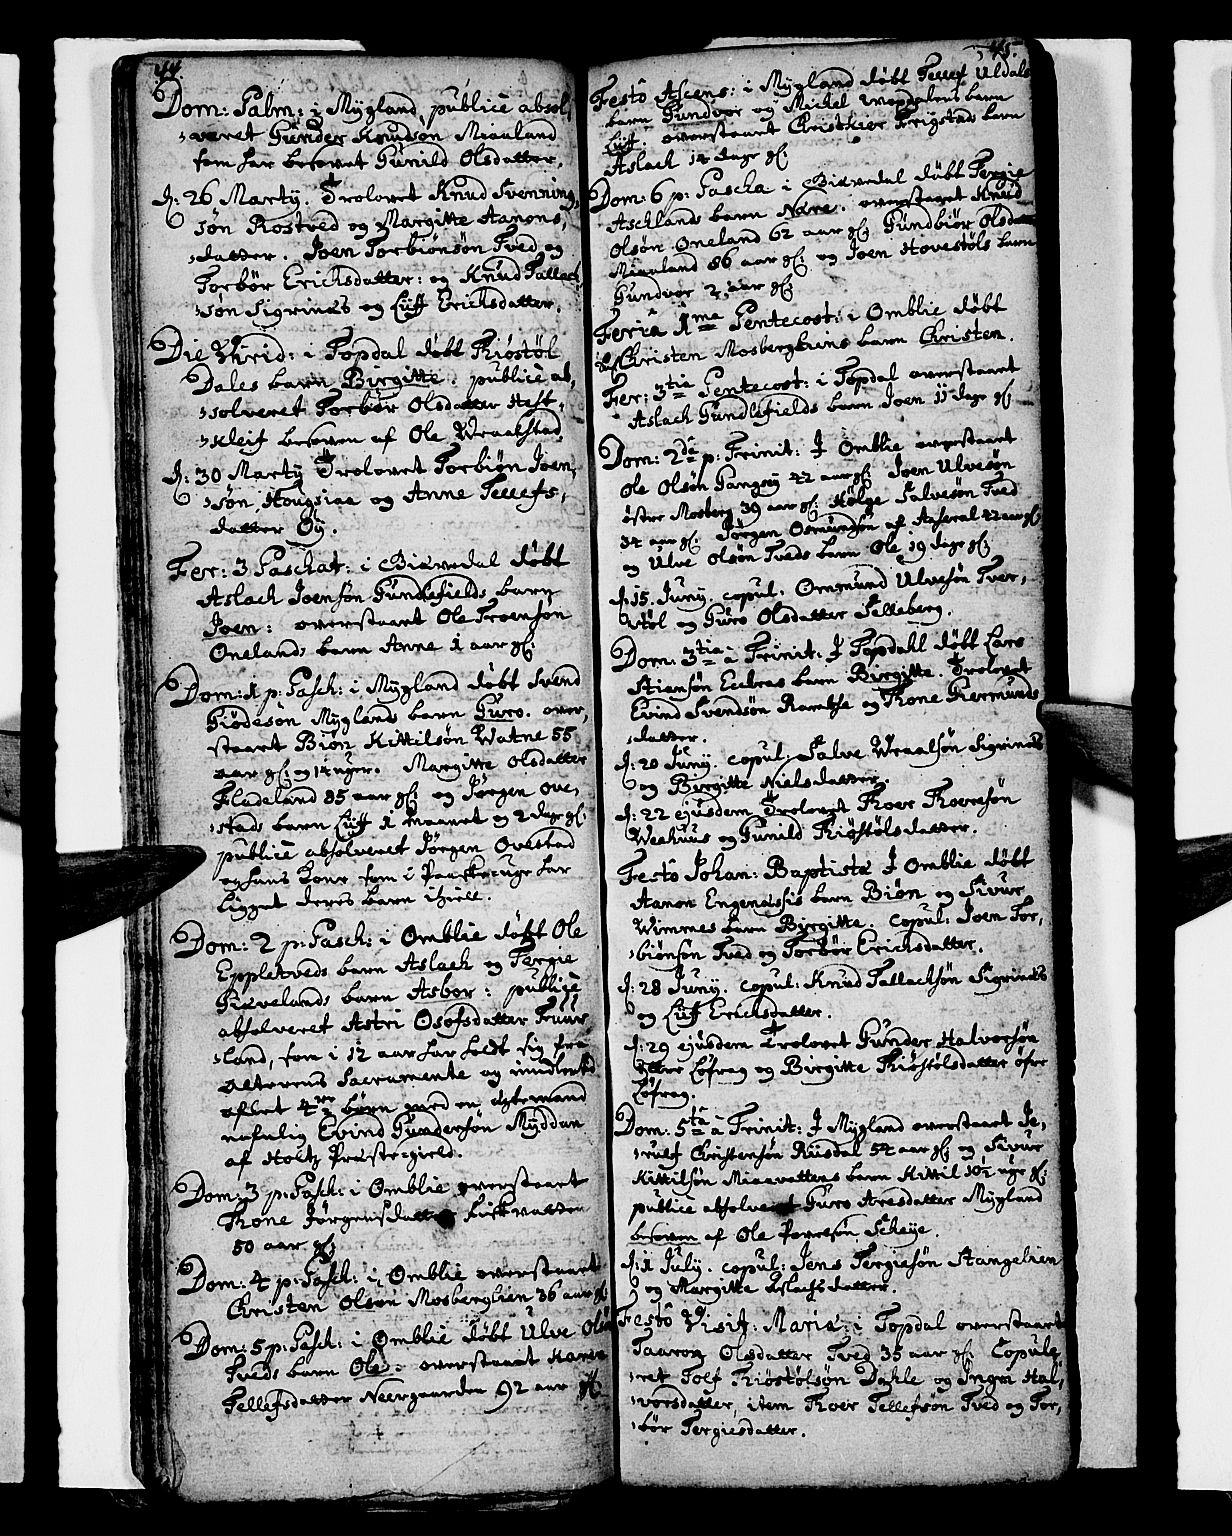 44.
Dom: Palm: i Mygland, publicè absol
veret Gunder Knudsøn Miauland
som har besovet Gunild Olsdatter.
d: 26 Marty. Trolovet Knud Svenning,
søn Rostved og Margitte Aanons,
datter. Joen Torbiønsøn Tved og
Torbør Erichsdatter: og Knud Tallach
søn Sigrinæs og Liff Erichsdatter.
Die Virid: i Topdal døbt Kiøstøl
Dales barn Birgitte. publicè ab,
solveret Torbør Olsdatter Hest,
kleif besoven af Ole Wraalstad
d: 30 Marty Trolovet Torbiøn Joen,
søn Hougsiaa og Anne Tellefs,
datter Øy.
Fer: 3 Paschat: i Giøvedal døbt
Aslach Joensøn Gundlefields barn
Joen: overstaaet Ole Troensøn
Onelands barn Anne 1 aar gl:
Dom: 1 p: Pasch: i Mygland døbt Svend
Giødesøn Myglands barn Guro. over,
staaet Biøn Kittilsøn Watne 55
aar gl: og 14 uger. Margitte Olsdatter
Fladeland 85 aar gl: og Jørgen Ove,
stads barn Liff 1 maanet og 2 dage gl:
publicè absolveret Jørgen Ovestad
og hans Kone som i Paaske-uge har
ligget deres barn ihiell.
Dom: 2 p: Pasch: i Omblie døbt Ole
Eppletveds barn Aslach og Tergie
Giævelands barn Asbor: publicè
absolveret Astri Osofsdatter Fuur
land, som i 12 aar har holdt sig fra
alterens Sacramente og imidlertid
aflet 4re børn med en ægtemand
nafnlig Evind Gundersøn Myddun
af Holtz Præste-gield.
Dom: 3 p: Pasch: i Omblie overstaaet
Thone Jørgensdatter Fiskvatten
50 aar gl:
Dom: 4 p: Pasch: i Omblie overstaaet
Christen Olsøn Mosberglien 36 aar gl:
Dom: 5 p: Pasch: i Omblie døbt Ulve Olsøn
Tveds barn Ole: overstaaet Karen
Tellefsdatter Neergaarden 92 aar gl:
45.
Festo Ascens: i Mygland døbt Tellef Uldals
barn Gundvor og Michel Wopdalens barn
Liff. overstaaet Christkier Frigstads barn
Aslach 14 dage gl:
Dom: 6 p: Pascha i Giøvedal døbt Tergie
Aschlands barn Nære. overstaaet Knud
Olsøn Oneland 62 aar gl: Gundbiør Olsdatter
Miauland 86 aar gl: og Joen Hovestøls barn
Gundvor 2 aar gl:
Feria 1ma Pentecost: i Omblie døbt
Christen Mosbergliens barn Christen.
Fer: 3tia Pentecost: i Topdal overstaaet
Aslach Gundlefields barn Joen 11 dage gl:
Dom: 2da p: Trinit: I Omblie overstaaet
Ole Olsøn Gangsey 42 aar gl: Joen Ulvesøn
østre Mosberg 39 aar gl: Hølge Salvesøn Tved
34 aar gl: Jørgen Osmundsøn af Aaseral 42 aar gl:
og Ulve Olsøn Tveds barn Ole 19 dage gl:
d: 15. Juny. copul. Omsmund Ulvesøn Tver,
støl og Guro Olsdatter Selleberg.
Dom: 3tia à Trinit: I Topdahl døbt Lars
Stiansøn Eccras barn Birgitte. Trolovet
Evind Svendsøn Ramse og Thone Giermunds
datter.
d: 20 Juny. copul: Salve Wraalsøn Sigrinæs
og Birgitte Nielsdatter.
d: 22 ejusdem Trolovet Thoer Thoresøn
Weehuus og Gunild Kiøstølsdatter.
Festo Johan: Baptistæ I Omblie døbt
Aanon Engenæssis barn Biøn og Sivur
Wimmes barn Birgitte. copul: Joen Tor,
biønsøn Tved og Torbør Erichsdatter.
d: 28 Juny. copul: Knud Tallachsøn Sigrinæs
og Liff Erichsdatter.
d: 29 ejusdem Trolovet Gunder Halvorsøn
ytter Løfrag og Birgitte Kiøstølsdatter øfre
Løfrag.
Dom: 5ta à Trinit: I Mygland overstaaet Je,
rulf Christensøn Riisdal 54 aar gl: og Sivur
Kittilsøn Miaavattens barn Kittil 10½ uge gl:
publice absolveret Guro Aresdatter Mygland
besoven af Ole Poversøn Scheye.
d: 1 July. copul: Jens Tergiesøn Stangelien
og Margitte Aslachsdatter.
Festo Visit: Mariæ: i Topdal overstaaet
Taaron Olsdatter Tved 35 aar gl: Copule
ret Tolf Kiøstølsøn Dahle og Inger Hal,
vorsdatter, item Thoer Tellefsøn Tved og Tor,
bør Tergiesdatter.